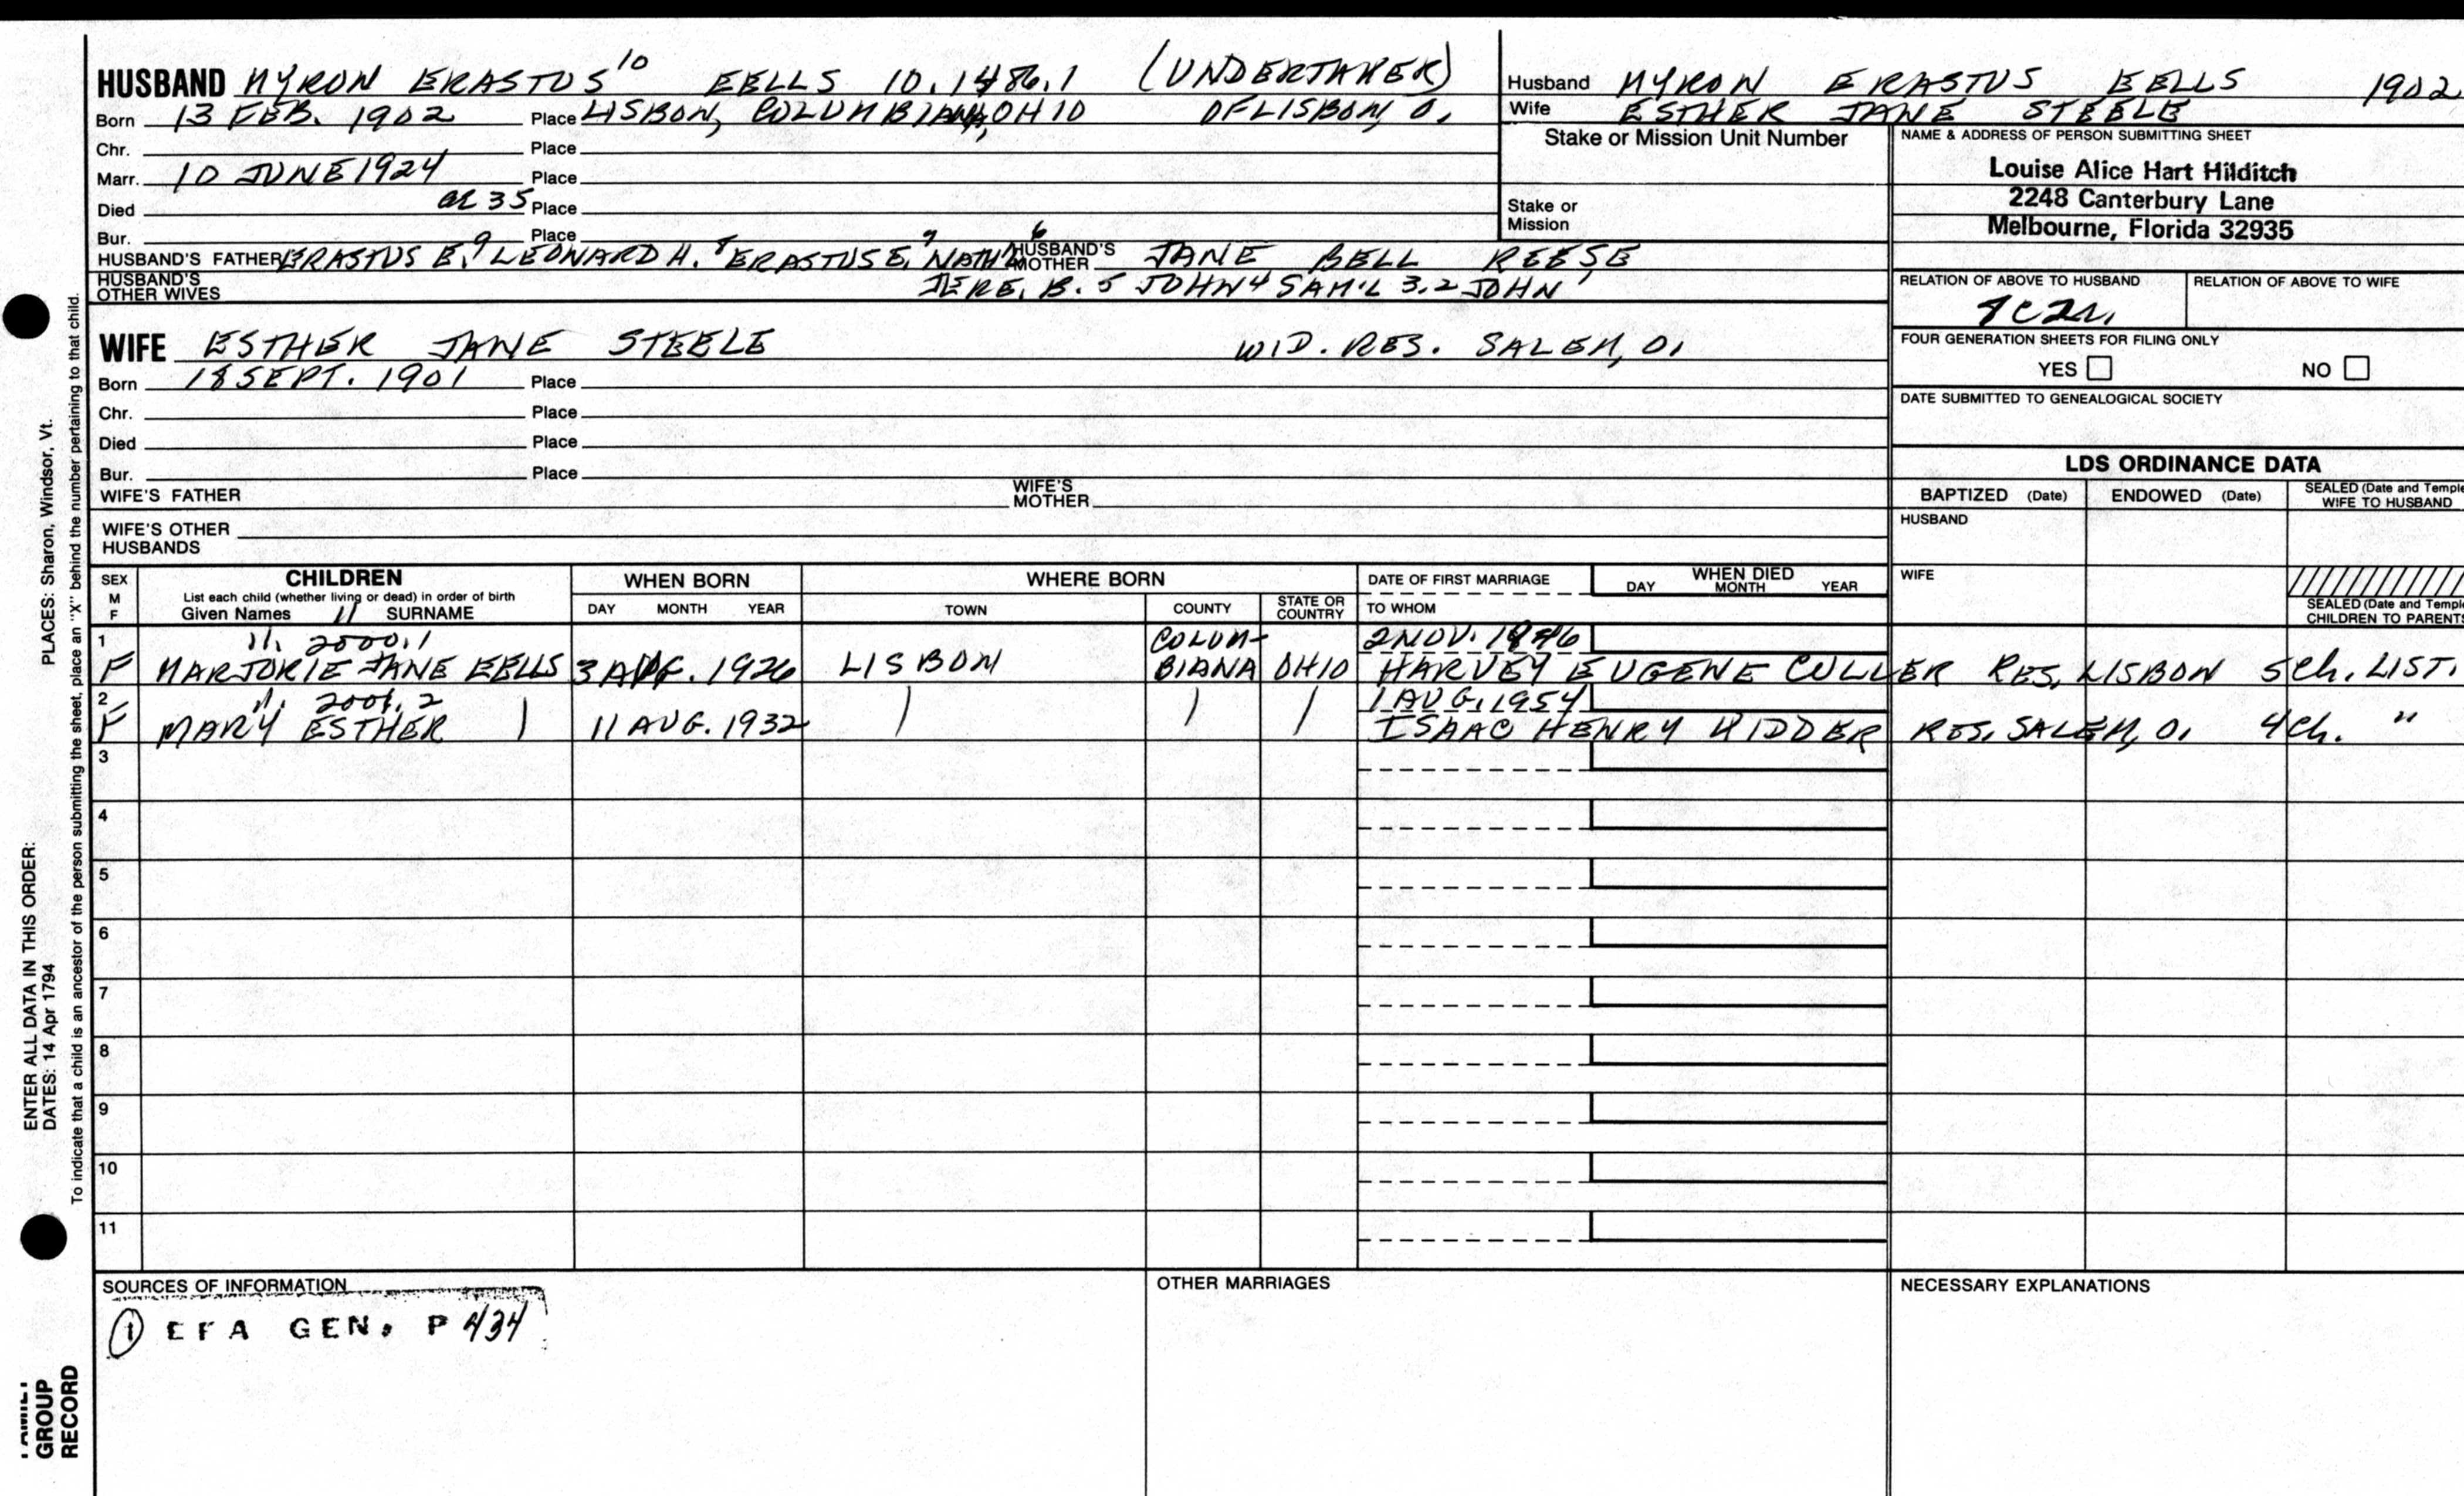 HUSBAND MYRON ERASTUS 10 EELLS 10.1486.1 (UNDERTAKER)
Born 13 FEB. 1902 Place LISBON, COLUMBIANA, OHIO OF LISBON, O.
Chr. Place
Marr. 10 JUNE 1924 Place
Died 35 Place
Bur. Place
HUSBAND'S FATHER ERASTUS E. 9 LEONARD H. 8 ERASTUS E. 7 NATH'L 6 HUSBAND'S MOTHER JANE BELL REESE
HUSBAND'S OTHER WIVES JERE. B. 5 JOHN 4 SAM'L 3.2 JOHN 1
Husband MYRON ERASTUS EELLS 1902
Wife ESTHER JANE STEELE
Stake or Mission Unit Number
Stake or
Mission
NAME & ADDRESS OF PERSON SUBMITTING SHEET
Louise Alice Hart Hilditch
2248 Canterbury Lane
Melbourne, Florida 32935
RELATION OF ABOVE TO HUSBAND RELATION OF ABOVE TO WIFE
FOUR GENERATION SHEETS FOR FILING ONLY
YES NO
DATE SUBMITTED TO GENEALOGICAL SOCIETY
WIFE ESTHER JANE STEELE WID. RES. SALEM, O.
Born 18 SEPT. 1901 Place
Chr. Place
Died Place
Bur. Place
WIFE'S FATHER WIFE'S MOTHER
WIFE'S OTHER HUSBANDS
LDS ORDINANCE DATA
BAPTIZED (Date) ENDOWED (Date) SEALED (Date and Temple
WIFE TO HUSBAND
HUSBAND
WIFE
SEALED (Date and Temple
CHILDREN TO PARENTS
SEX
M
F
CHILDREN
List each child (whether living or dead) in order of birth
Given Names 11 SURNAME
WHEN BORN
DAY MONTH YEAR
WHERE BORN
TOWN COUNTY STATE OR COUNTRY
DATE OF FIRST MARRIAGE
TO WHOM
WHEN DIED
DAY MONTH YEAR
1 11. 2000.1 COLUM- 2 NOV. 1946
F MARJORIE JANE EELLS 3 1926 LISBON BIANA OHIO HARVEY EUGENE CULLER RES. LISBON 5 Ch. LIST.
2 11. 2001.2 1 AUG. 1954
F MARY ESTHER | 11 AUG. 1932 | | | ISAAC HENRY KIDDER RES. SALEM, O. 4 Ch. "
3
4
5
6
7
8
9
10
11
SOURCES OF INFORMATION
① EFA GEN. P 434
OTHER MARRIAGES
NECESSARY EXPLANATIONS
PLACES: Sharon, Windsor, Vt.
ENTER ALL DATA IN THIS ORDER:
DATES: 14 Apr 1794
To indicate that a child is an ancestor of the person submitting the sheet, place an "X" behind the number pertaining to that child.
FAMILY
GROUP
RECORD